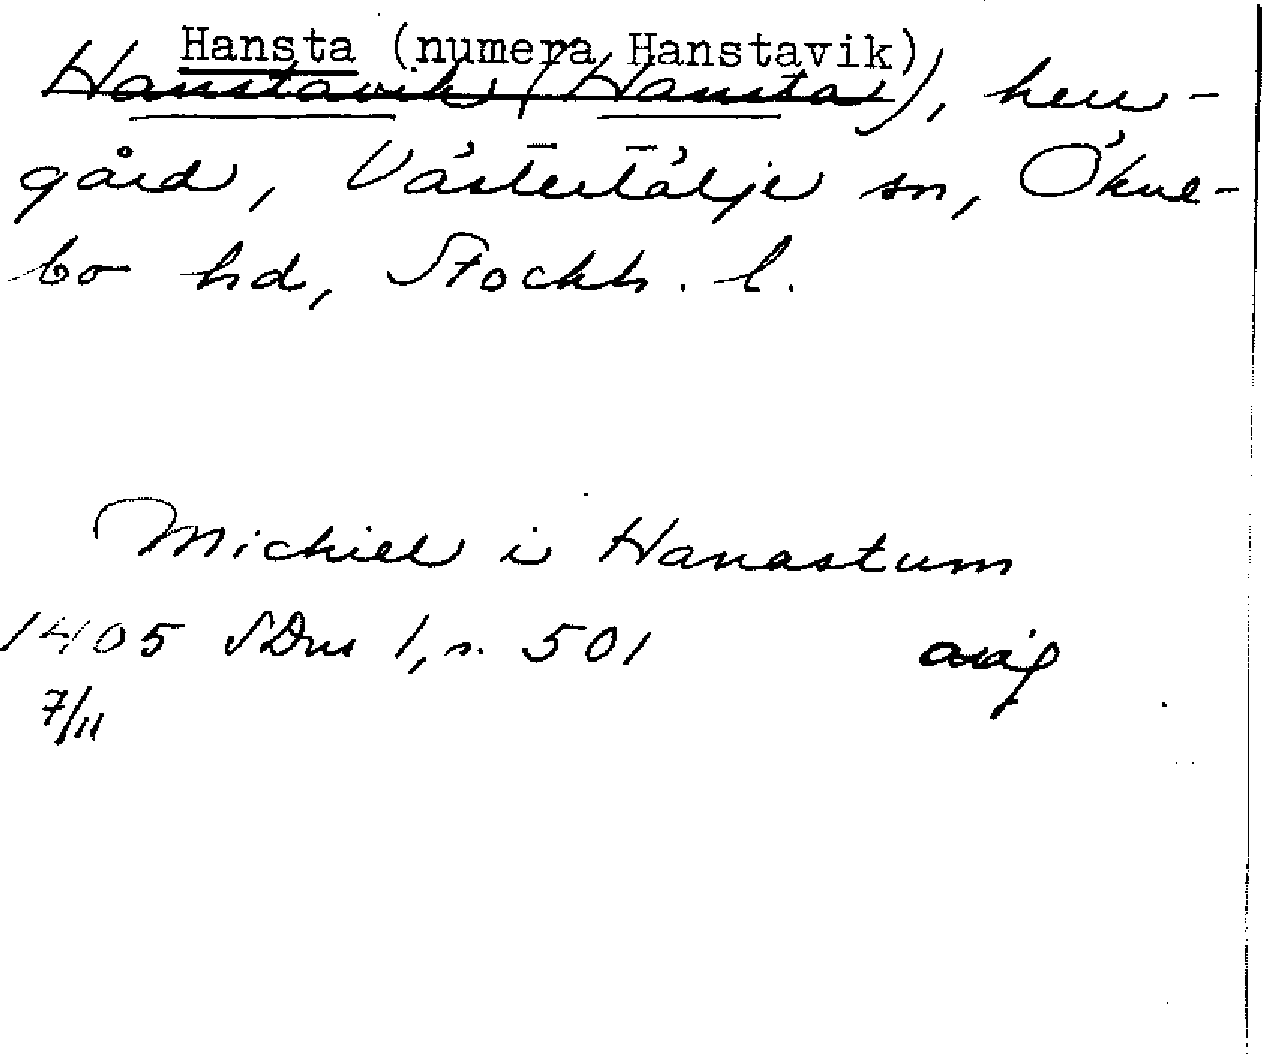 Hansta (numera Hanstavik)
Hanstavik (Hansta), herr-
gård, Västertälje sn, Ökne-
bo hd, Stockh. l.
Mickiel i Hanastum
1405 SDns 1, s. 501 avg
7/11